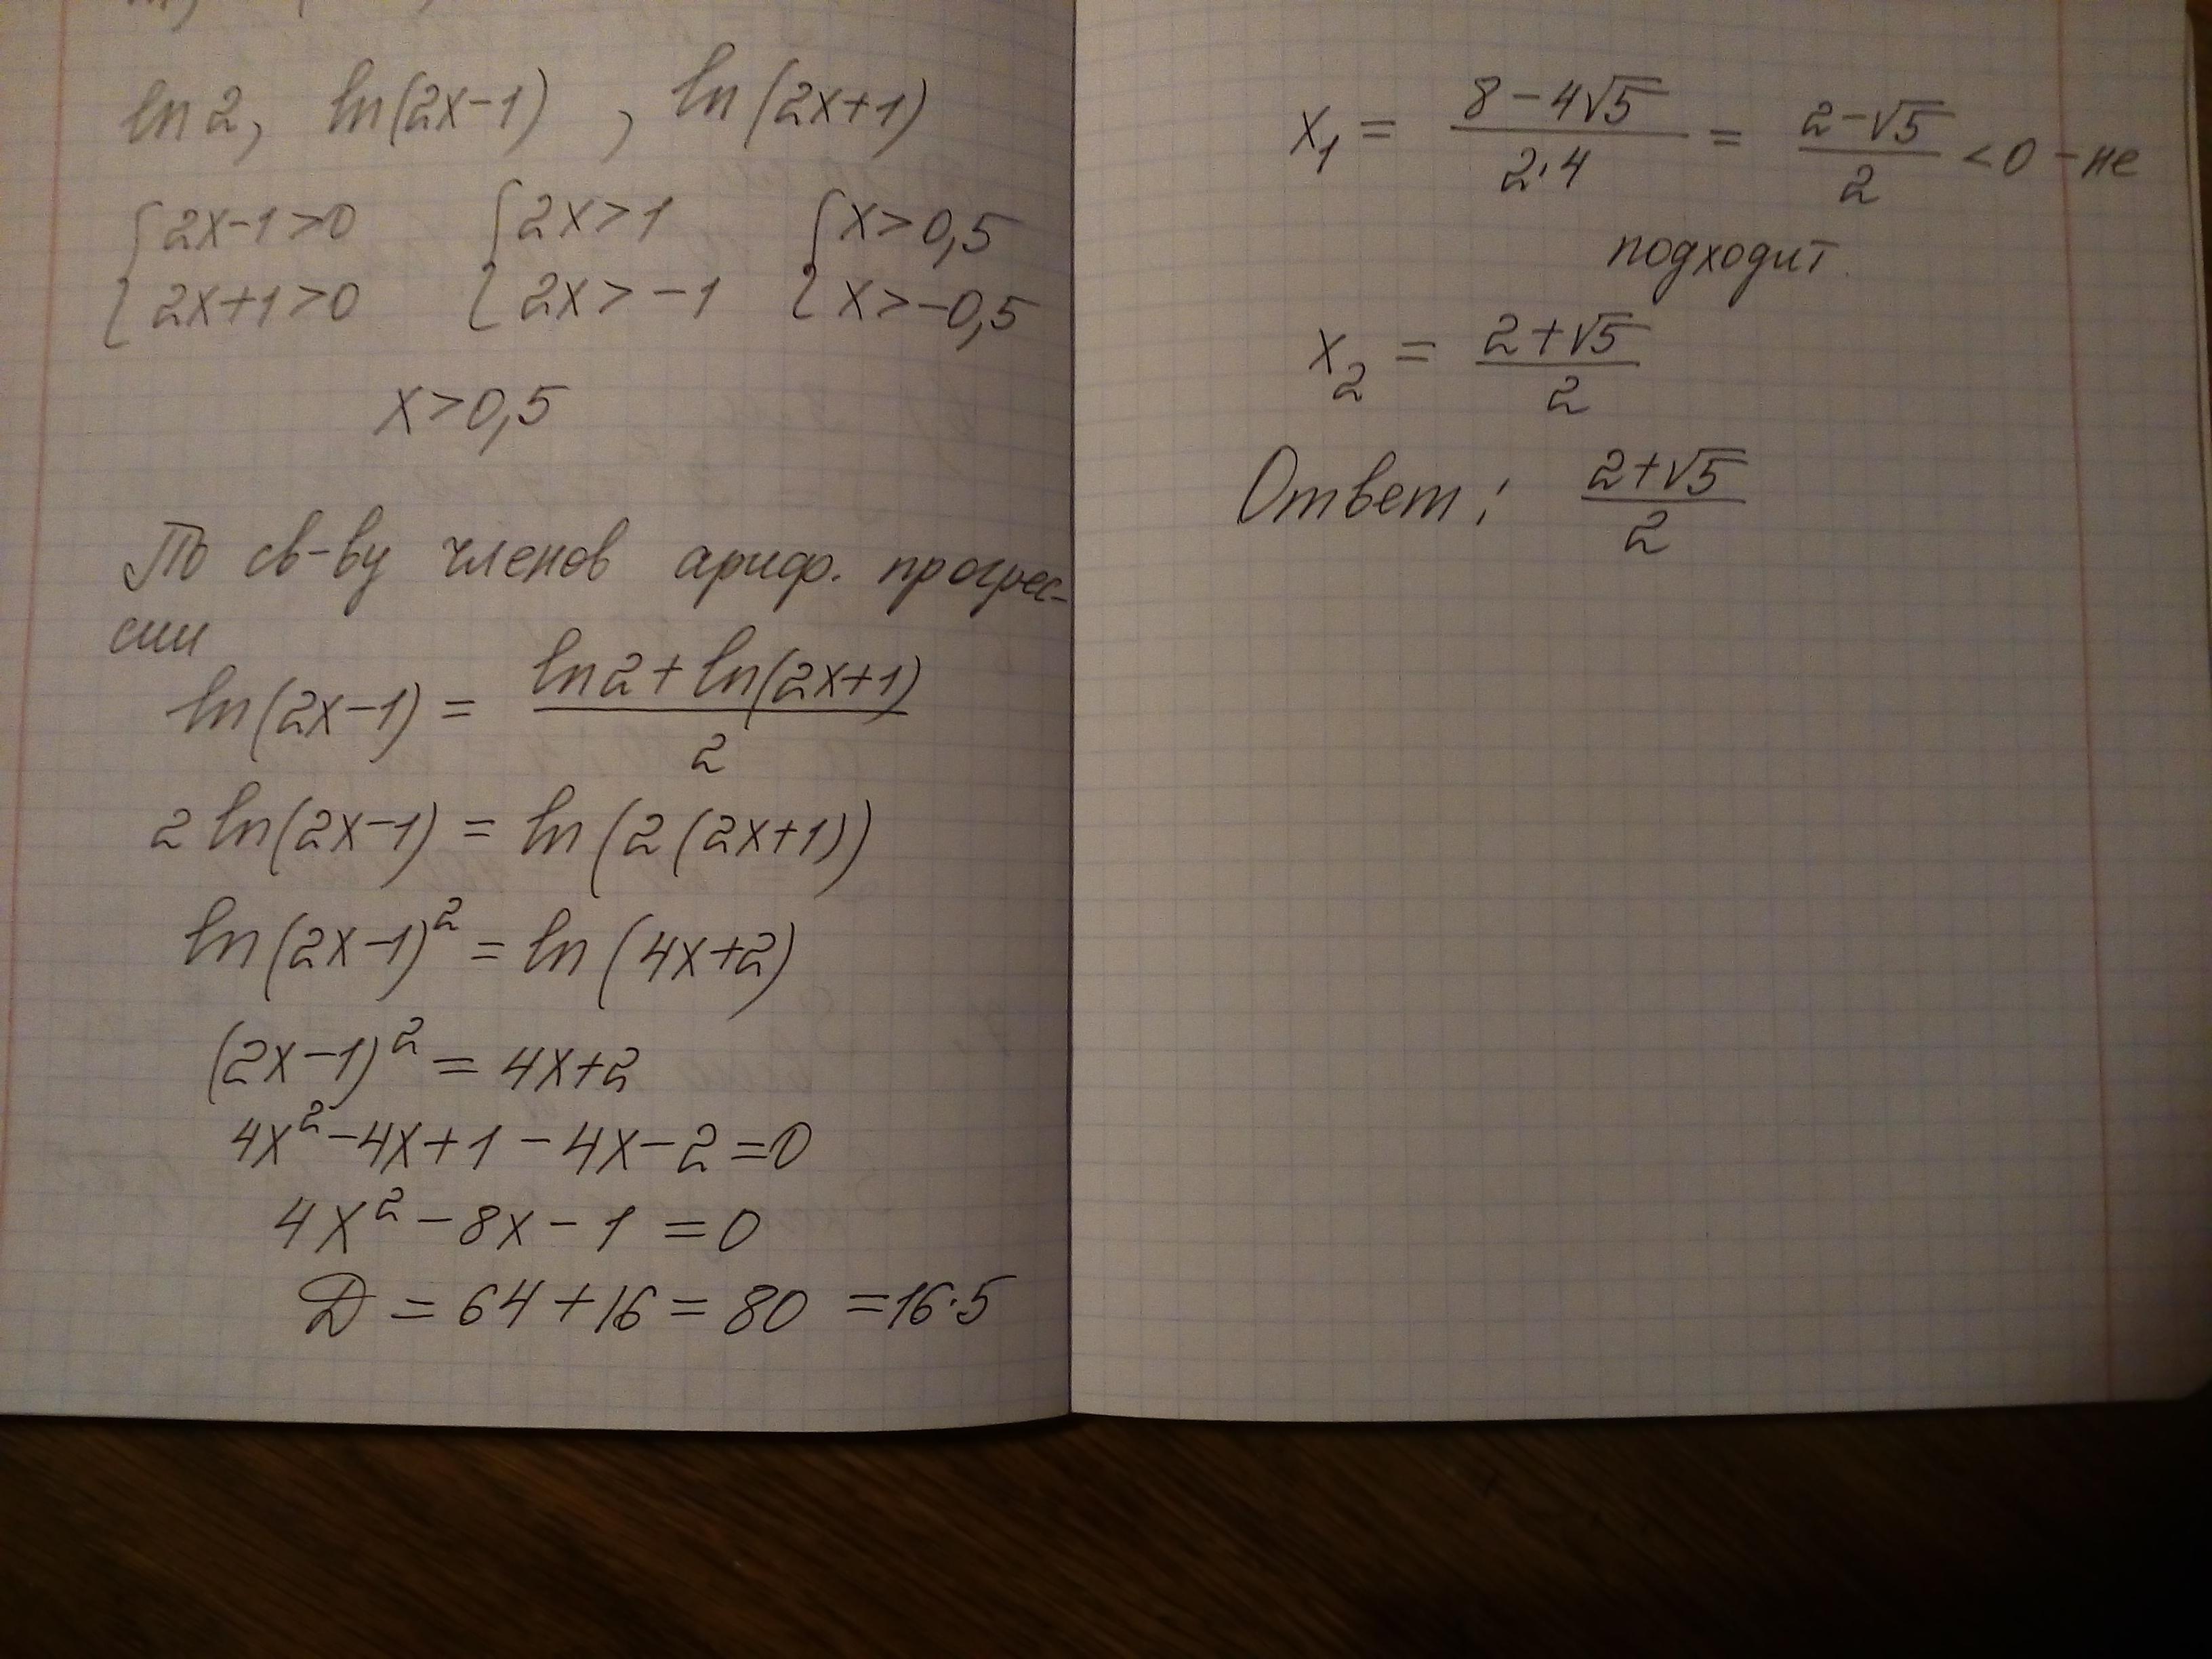 ln 2, ln(2x-1), ln(2x+1)
{2x-1>0 {2x>1 {x>0,5
{2x+1>0 {2x>-1 {x>-0,5
x>0,5
По св-ву членов ариф. прогрес-
сии
ln(2x-1) = (ln2 + ln(2x+1))/2
2 ln(2x-1) = ln(2(2x+1))
ln(2x-1)² = ln(4x+2)
(2x-1)² = 4x+2
4x²-4x+1-4x-2=0
4x²-8x-1=0
Д = 64+16 = 80 = 16·5
x₁ = (8-4√5)/(2·4) = (2-√5)/2 <0 - не
подходит.
x₂ = (2+√5)/2
Ответ: (2+√5)/2